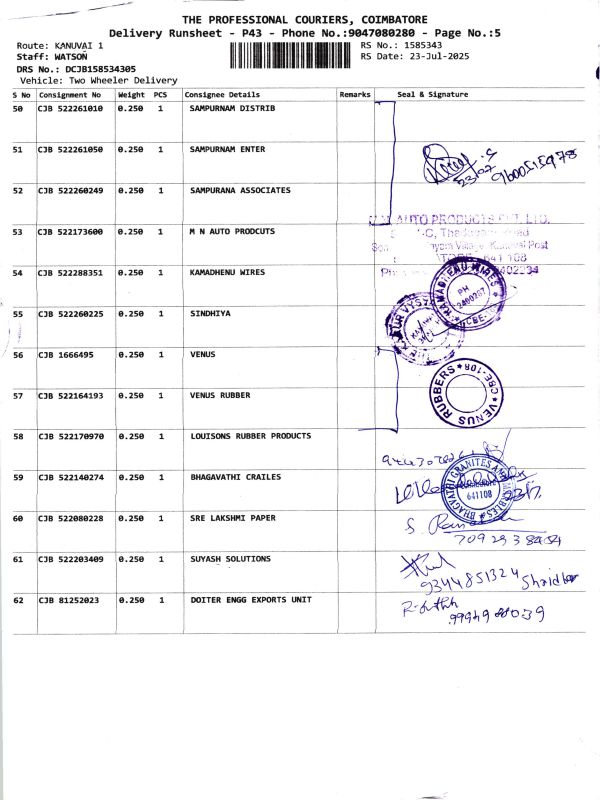 THE PROFESSIONAL COURIERS, COIMBATORE
Delivery Runsheet - P43 - Phone No.:9047080280 - Page No.:5
Route: KANUVAI 1 RS No.: 1585343
Staff: WATSON RS Date: 23-Jul-2025
DRS No.: DCJB158534305
Vehicle: Two Wheeler Delivery
S No Consignment No Weight PCS Consignee Details Remarks Seal & Signature
50 CJB 522261010 0.250 1 SAMPURNAM DISTRIB
51 CJB 522261050 0.250 1 SAMPURNAM ENTER
9600515978
52 CJB 522260249 0.250 1 SAMPURANA ASSOCIATES
AUTO PRODUCTS PVT. LTD.
53 CJB 522173600 0.250 1 M N AUTO PRODCUTS
Kanuvai Post
641 108
54 CJB 522288351 0.250 1 KAMADHENU WIRES
KAMADHENU WIRES
PH
2400267
CBE
55 CJB 522260225 0.250 1 SINDHIYA
56 CJB 1666495 0.250 1 VENUS
57 CJB 522164193 0.250 1 VENUS RUBBER
VENUS RUBBERS CBE-108
58 CJB 522170970 0.250 1 LOUISONS RUBBER PRODUCTS
59 CJB 522140274 0.250 1 BHAGAVATHI CRAILES
BHAGVATHI GRANITES AND MARBLES
641108
60 CJB 522080228 0.250 1 SRE LAKSHMI PAPER
61 CJB 522203409 0.250 1 SUYASH SOLUTIONS
9344851324
62 CJB 81252023 0.250 1 DOITER ENGG EXPORTS UNIT